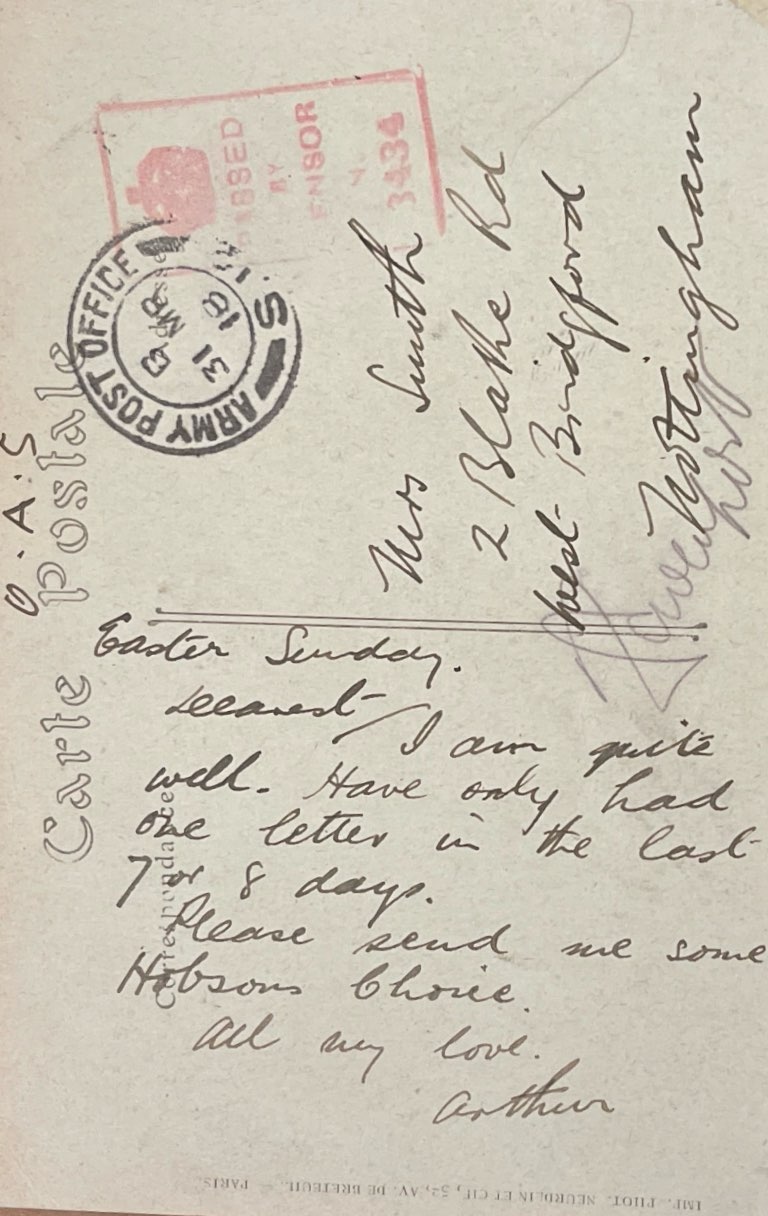 O.A.S
Carte Postale
Correspondance
PASSED
BY
CENSOR
No.
3434
ARMY POST OFFICE
B
31 MR
18
Mrs Smith
2 Blake Rd
West Bridgford
Nottingham
Easter Sunday.
Dearest
I am quite
well. Have only had
one letter in the last
7 or 8 days.
Please send me some
Hobsons Choice.
All my love.
Arthur
IMP. PHOT. NEURDEIN ET CIE, 52, AV. DE BRETEUIL. — PARIS.